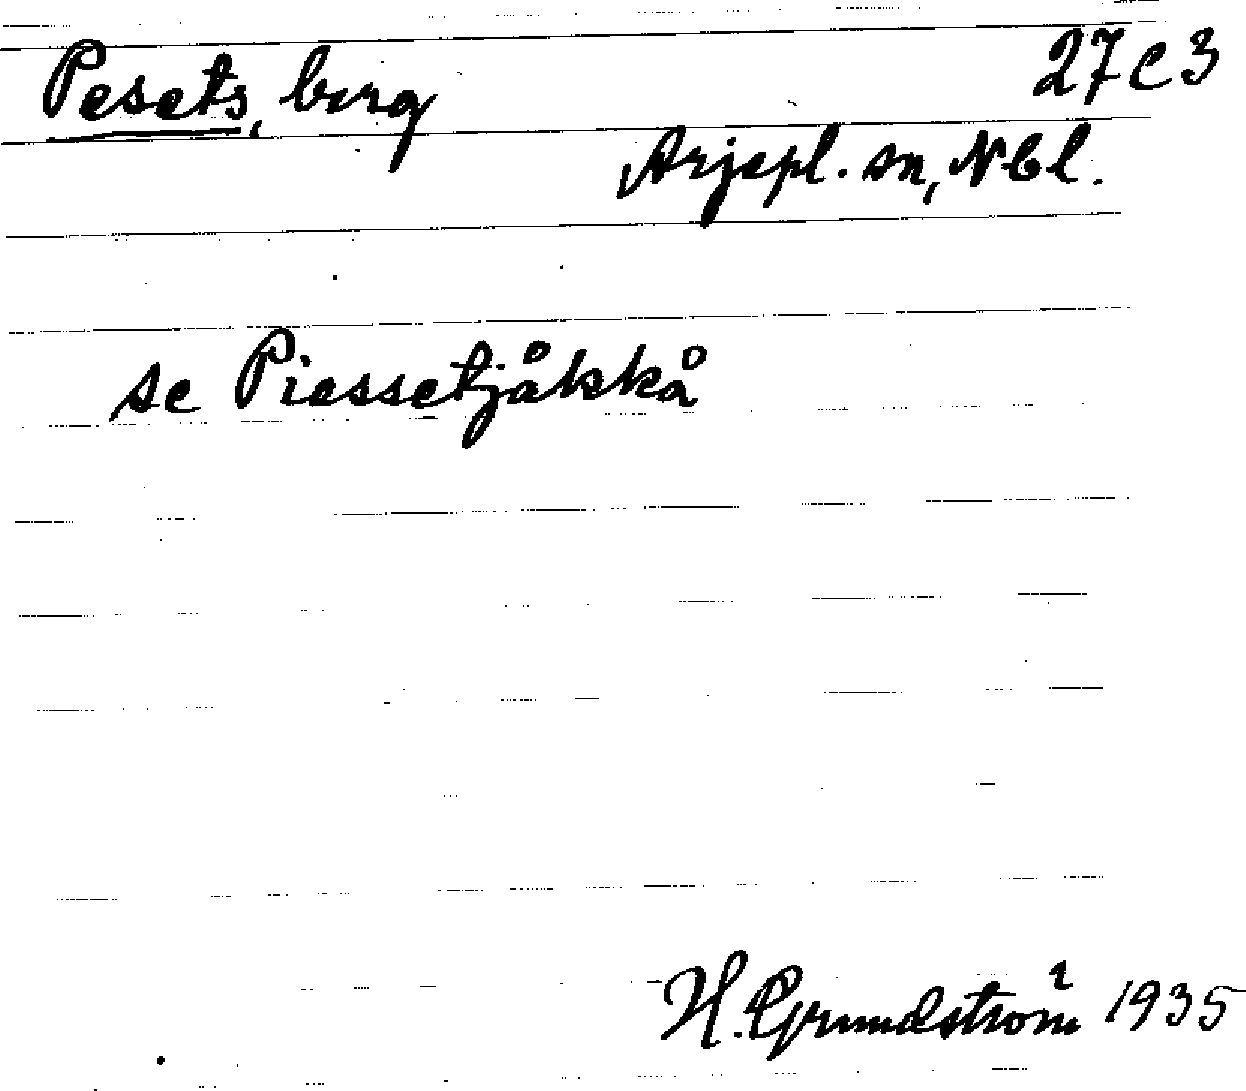 Pesets, berg 27C3
Arjepl. sn, Nbl.
se Piessetjåkkå
H. Grundström 1935